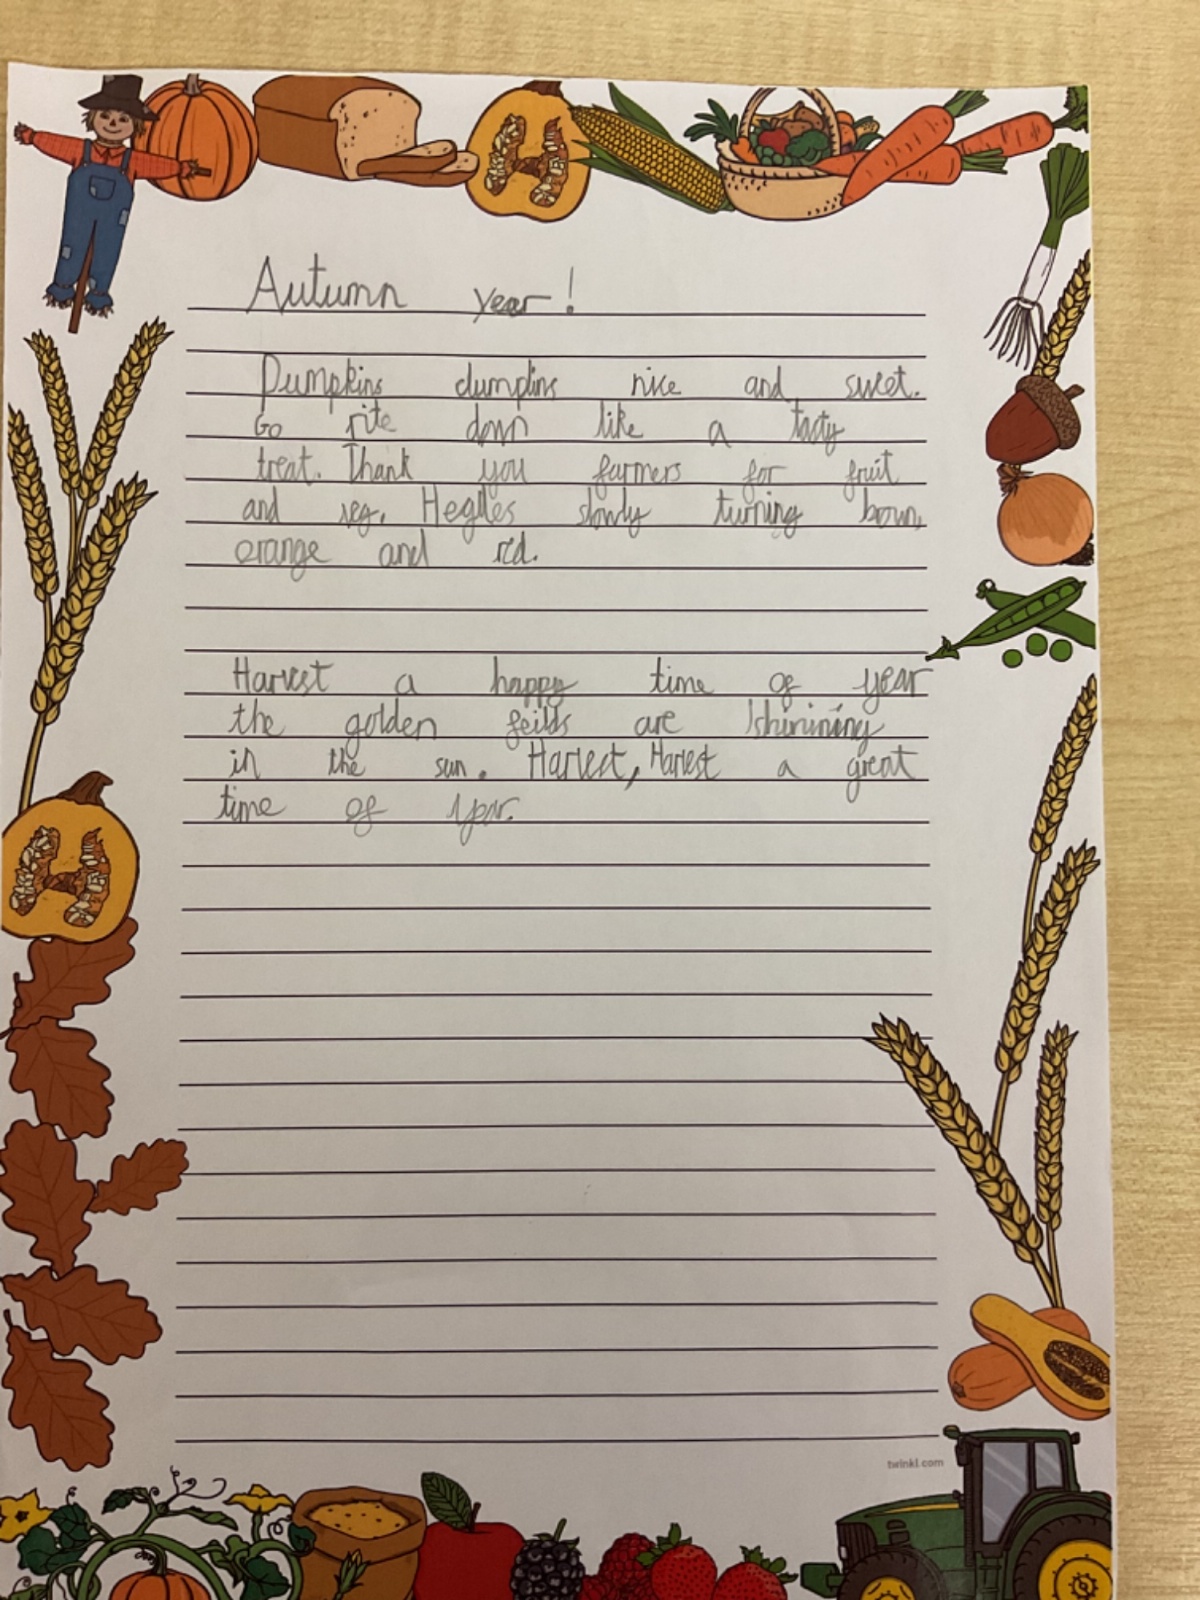 Autumn year!
Pumpkins dumplins nice and sweet.
Go rite down like a tasty
treat. Thank you farmers for fruit
and veg. Hegdes slowly turning
orange and red.
Harvest a happy time of year
the golden feilds are shinining
in the sun. Harvest, Harvest a great
time of year.
twinkl.com